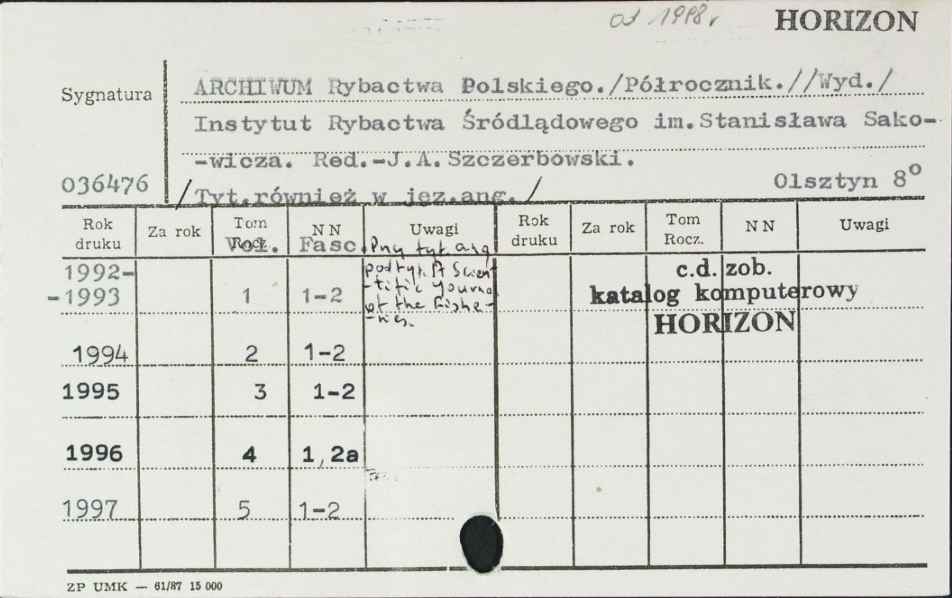 od 1998r HORIZON
Sygnatura
036476
ARCHIWUM Rybactwa Polskiego./Półrocznik.//Wyd./
Instytut Rybactwa Śródlądowego im.Stanisława Sako-
-wicza. Red.-J.A.Szczerbowski.
Olsztyn 8°
/Tyt.również w jęz.ang./
Rok druku Za rok Tom Rocz. Vol. NN Fasc. Uwagi Rok druku Za rok Tom Rocz. NN Uwagi
1992-
-1993 1 1-2
Przy tyt. ang
podtyt. A Scien-
-tific Journal
of the Fishe-
-ries.
c.d. zob.
katalog komputerowy
HORIZON
1994 2 1-2
1995 3 1-2
1996 4 1,2a
1997 5 1-2
ZP UMK — 61/87 15 000